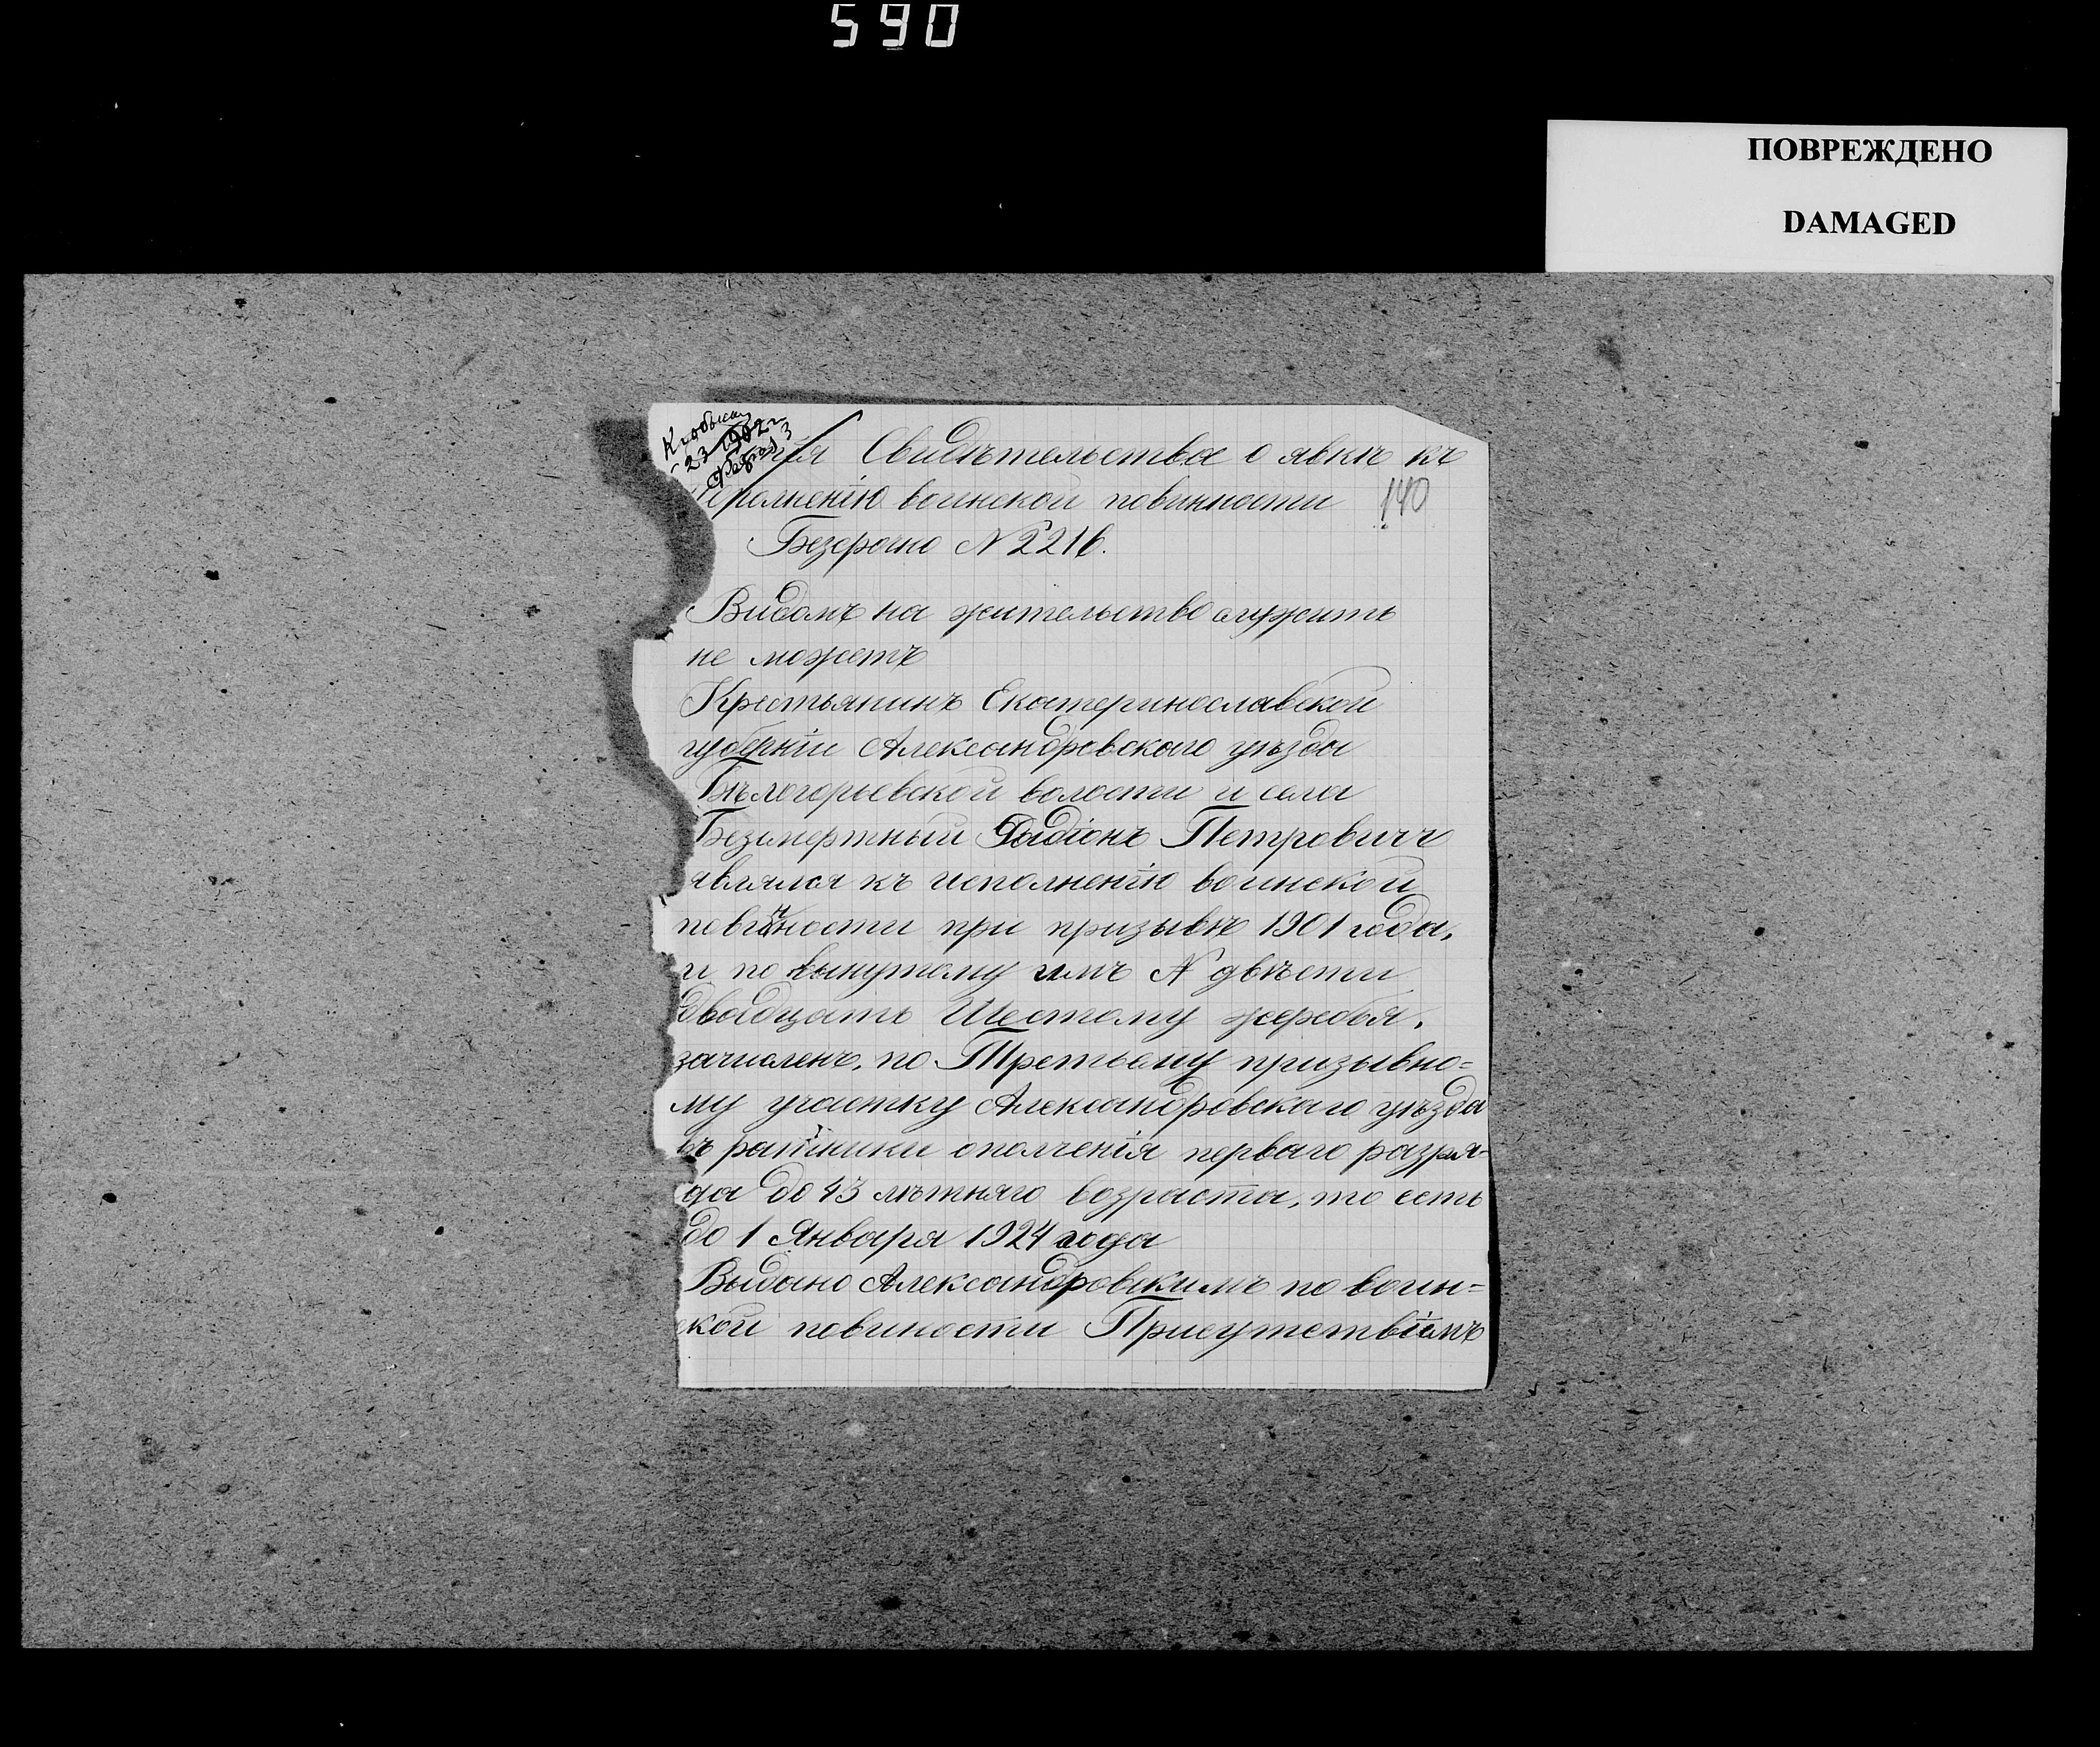 590
ПОВРЕЖДЕНО
DAMAGED
23 1902 г
Свидѣтельства о явкѣ къ
исполненію воинской повинности
140
Безсрочно № 2216.
Видомъ на жительство служить
не можетъ
Крестьянинъ Екатеринославской
губерніи Александровского уѣзда
Бѣлогорьевской волости и села
Безсмертный Радіонъ Петровичъ
являлся къ исполненію воинской
повинности при призывѣ 1901 года,
и по вынутому имъ № двѣсти
двадцать Шестому жеребья,
зачисленъ, по Третьему призывно=
му участку Александровскаго уѣзда
въ ратники ополченія перваго разря-
да до 43 лѣтняго возраста, то есть
до 1 Января 1924 года
Выдано Александровскимъ по воин=
ской повиности Присутствіемъ